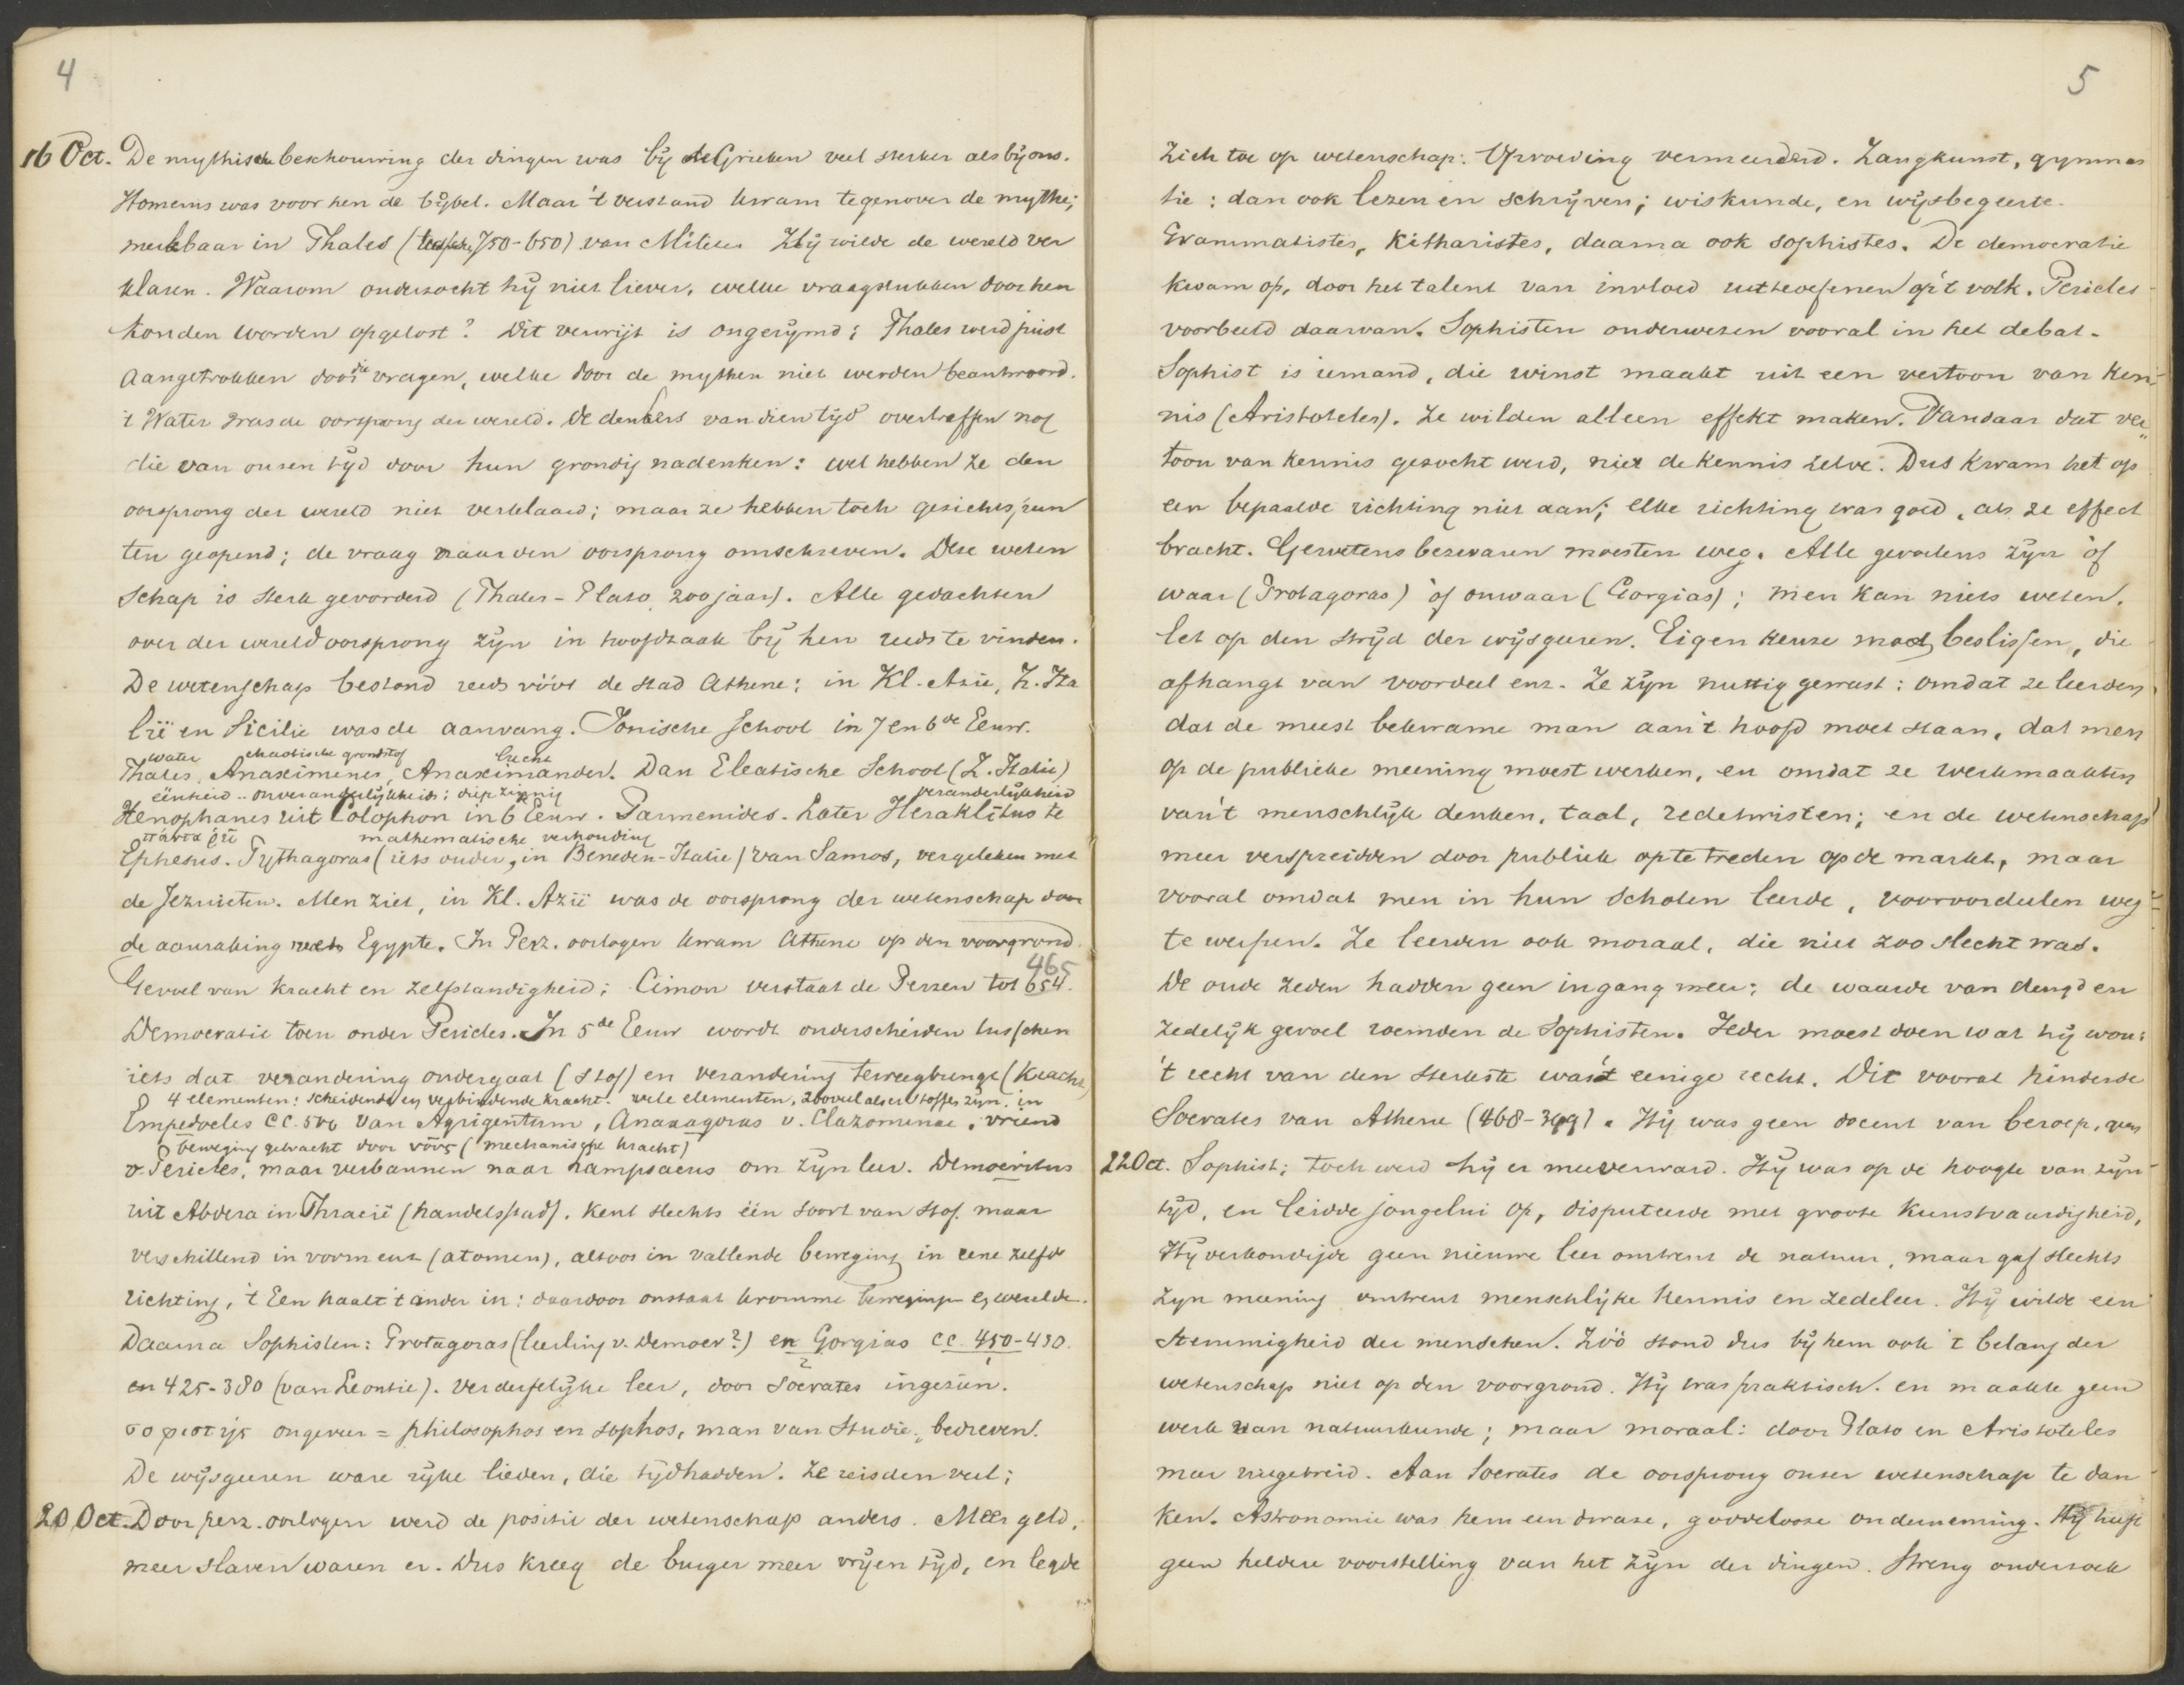 4
16 Oct. De mythische beschouwing der dingen was bij de Grieken veel sterker als bij ons.
Homerus was voor hen de bijbel. Maar 't verstand kwam tegenover de mythe;
merkbaar in Thales (750-650) van Milete. Hij wilde de wereld ver
klaren. Waarom onderzocht hij niet liever, welke vraagstukken door hen
konden worden opgelost? Dit verwijt is ongerijmd; Thales werd juist
aangetrokken door die vragen, welke door de mythen niet werden beantwoord.
't Water was de oorsprong der wereld. De denkers van dien tijd overtreffen nog
die van onzen tijd door hun grondig nadenken: wel hebben ze den
oorsprong der wereld niet verklaard; maar ze hebben toch gezichtspun
ten geopend; de vraag naar den oorsprong omschreven. Deze weten
schap is sterk gevorderd (Thales-Plato, 200 jaar). Alle gedachten
over der wereldoorsprong zijn in hoofdzaak bij hen reeds te vinden.
De wetenschap bestond reeds vóór de stad Athene; in Kl. Azie, Z. Ita
lië en Sicilie was de aanvang. Ionische School in 7 en 6de Eeuw.
water chaotische grondstof lucht
Thales, Anaximenes, Anaximander. Dan Eleatische School (Z. Italie)
éénheid .. onveranderlijkheid; diepzinnig veranderlijkheid
Xenophanes uit Colophon in 6 Eeuw. Parmenides. Later Heraklitus te
πάντα ῥεῖ mathematische verhouding
Ephesus. Pythagoras (iets ouder, in Beneden-Italie) van Samos, vergeleken met
de Jezuieten. Men ziet, in Kl. Azië was de oorsprong der wetenschap door
de aanraking met Egypte. In Perz. oorlogen kwam Athene op den voorgrond.
465
Gevoel van kracht en zelfstandigheid; Cimon verslaat de Perzen tot 654.
Democratie toen onder Pericles. In 5de Eeuw wordt onderscheiden tusschen
iets dat verandering ondergaat (stof) en verandering teweegbrengt (kracht)
4 elementen: scheidende en verbindende kracht. vele elementen, zooveel als er stoffen zijn. in
Empedocles CC. 500 van Agrigentum, Anaxagoras v. Clazomenae, vriend
beweging gebracht door νοῦς (mechanische kracht)
v Pericles, maar verbannen naar Lampsacus om zijn leer. Democritus
uit Abdera in Thracië (handelsstad). Kent slechts één soort van stof. maar
verschillend in vorm enz (atomen), altoos in vallende beweging in eene zelfde
richting, 't Een haalt 't ander in: daardoor onstaat kromme beweging en werelden.
Daarna Sophisten: Protagoras (leerling v. Democr?) en Gorgias CC. 450-430.
en 425-380 (van Leontie). Verderfelijke leer, door Socrates ingezien.
σοφιστής ongeveer = philosophos en sophos, man van studie, bedreven.
De wijsgeeren ware rijke lieden, die tijd hadden. Ze reisden veel;
20 Oct. Door perz. oorlogen werd de positie der wetenschap anders. Meer geld,
meer slaven waren er. Dus kreeg de burger meer vrijen tijd, en legde
5
zich toe op wetenschap. Opvoeding vermeerderd. Zangkunst, gymnas
tie: dan ook lezen en schrijven; wiskunde, en wijsbegeerte.
Grammatistes, Kitharistes, daarna ook sophistes. De democratie
kwam op, door het talent van invloed uitteoefenen op 't volk. Pericles
voorbeeld daarvan. Sophisten onderwezen vooral in het debat.
Sophist is iemand, die winst maakt uit een vertoon van ken-
nis (Aristoteles). Ze wilden alleen effekt maken. Vandaar dat ver„
toon van kennis gezocht werd, niet de kennis zelve. Dus kwam het op
een bepaalde richting niet aan; elke richting was goed, als ze effect
bracht. Gewetensbezwaren moesten weg. Alle gevoelens zijn òf
waar (Protagoras) òf onwaar (Gorgias); men kan niets weten.
let op den strijd der wijsgeeren. Eigen keuze moet beslissen, die
afhangt van voordeel enz. Ze zijn nuttig geweest: omdat ze leerden
dat de meest bekwame man aan 't hoofd moet staan, dat men
op de publieke meening moest werken, en omdat ze werk maakten
van 't menschlijk denken, taal, redetwisten; en de wetenschap
meer verspreidden door publiek opte treden op de markt, maar
vooral omdat men in hun scholen leerde, vooroordeelen weg
te werpen. Ze leerden ook moraal, die niet zoo slecht was.
De oude zeden hadden geen ingang meer; de waarde van deugd en
zedelijk gevoel roemden de Sophisten. Ieder moest doen wat hij wou:
't recht van den sterkste was 't eenige recht. Dit vooral hinderde
Socrates van Athene (468-399). Hij was geen docent van beroep,
22 Oct. Sophist; toch werd hij er mee verward. Hij was op de hoogte van zijn
tijd, en leidde jongelui op, disputeerde met groote kunstvaardigheid,
Hij verkondigde geen nieuwe leer omtrent de natuur, maar gaf slechts
zijn meening omtrent menschlijke kennis en zedeleer. Hij wilde een
stemmigheid der menschen. Zóó stond dus bij hem ook 't belang der
wetenschap niet op den voorgrond. Hij was praktisch. en maakte geen
werk van natuurkunde; maar moraal: door Plato en Aristoteles
meer uitgebreid. Aan Socrates de oorsprong onzer wetenschap te dan
ken. Astronomie was hem een dwaze, goddelooze onderneming. Hij heeft
geen heldere voorstelling van het zijn der dingen. Streng onderzoek